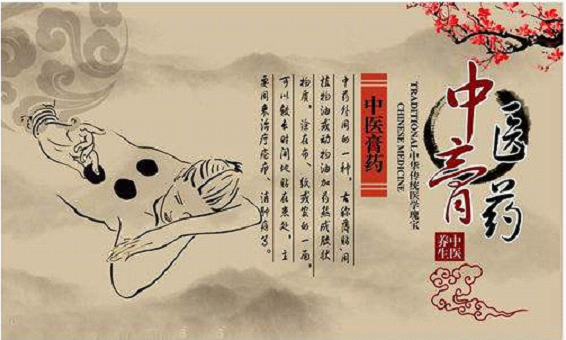 中医膏药
中医
养生
TRADITIONAL 中华传统医学瑰宝
CHINESE MEDICINE
中医膏药
中药外用的一种，古称薄贴，用
植物油或动物油加药熬成胶状
物质，涂在布、纸或皮的一面，
可以较长时间地贴在患处，主
要用来治疗疮疖、消肿痛等。